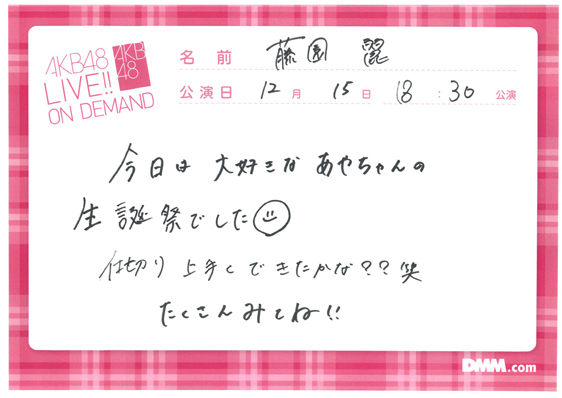 AKB48
LIVE!!
ON DEMAND
AKB
48
名前 藤園 麗
公演日 12月 15日 18:30 公演
今日は 大好きな あやちゃんの
生誕祭でした
仕切り 上手くできたかな??笑
たくさんみてね!!
DMM.com